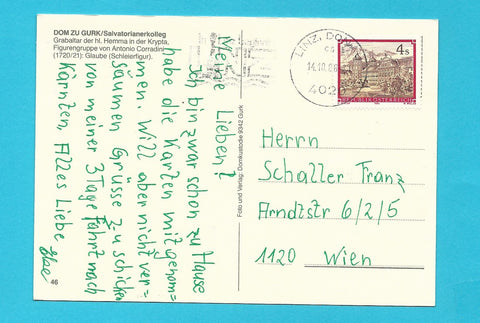 DOM ZU GURK/Salvatorianerkolleg
Grabaltar der hl. Hemma in der Krypta,
Figurengruppe von Antonio Corradini
(1720/21): Glaube (Schleierfigur).
Meine Lieben!
Ich bin zwar schon zu Hause
habe die Karten mitgenom=
men. Will aber nicht ver=
säumen Grüsse zu schicken
von meiner 3 Tage fahrt nach
Kärnten, Alles Liebe
46
Foto und Verlag: Domkustodie 9342 Gurk
LINZ, DONAU
14.10.
4020
4 S
REPUBLIK ÖSTERREICH
Herrn
Schaller Franz
Arndtstr 6/2/5
1120 Wien